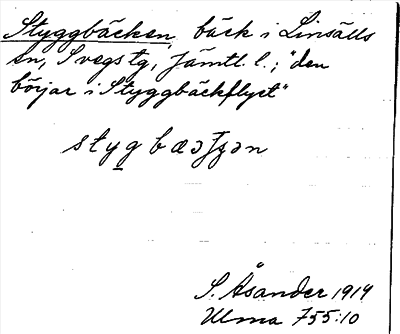 Styggbäcken, bäck i Linsälls
sn, Svegs tg, Jämtl. l.; "den
börjar i Styggbäckflyet"
S. Åsander 1919
Ulma 755:10